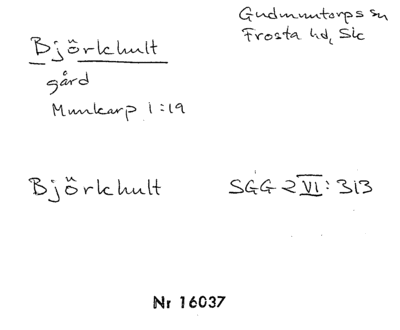 Gudmuntorps sn
Frosta hd, Sk
Björkhult
gård
Munkarp 1:19
Björkhult SGG 2 VI: 313
Nr 16037